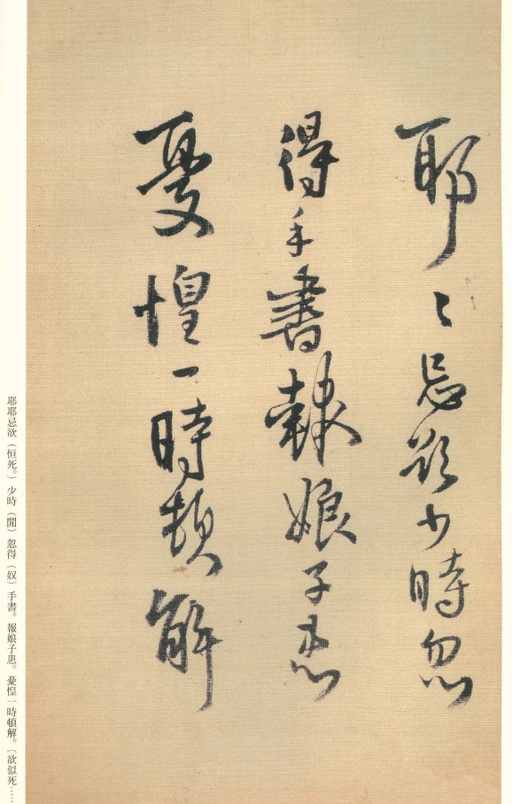 耶〻忌欲少時忽
得手書報娘子患
憂惶一時頓解
耶耶忌欲（恒死。）少時（間）忽得（奴）手書。報娘子患。憂惶一時頓解。（欲似死……